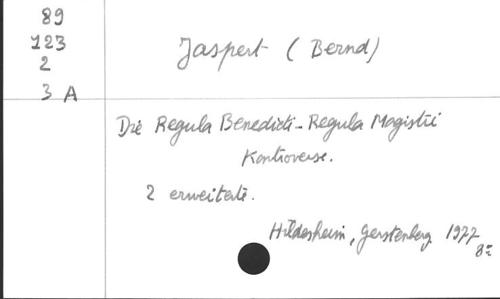 89
123
2
3 A
Jaspert (Bernd)
Die Regula Benedicti-Regula Magistri
Kontroverse.
2 erweiterte.
Hildesheim, Gerstenberg 1977
8º